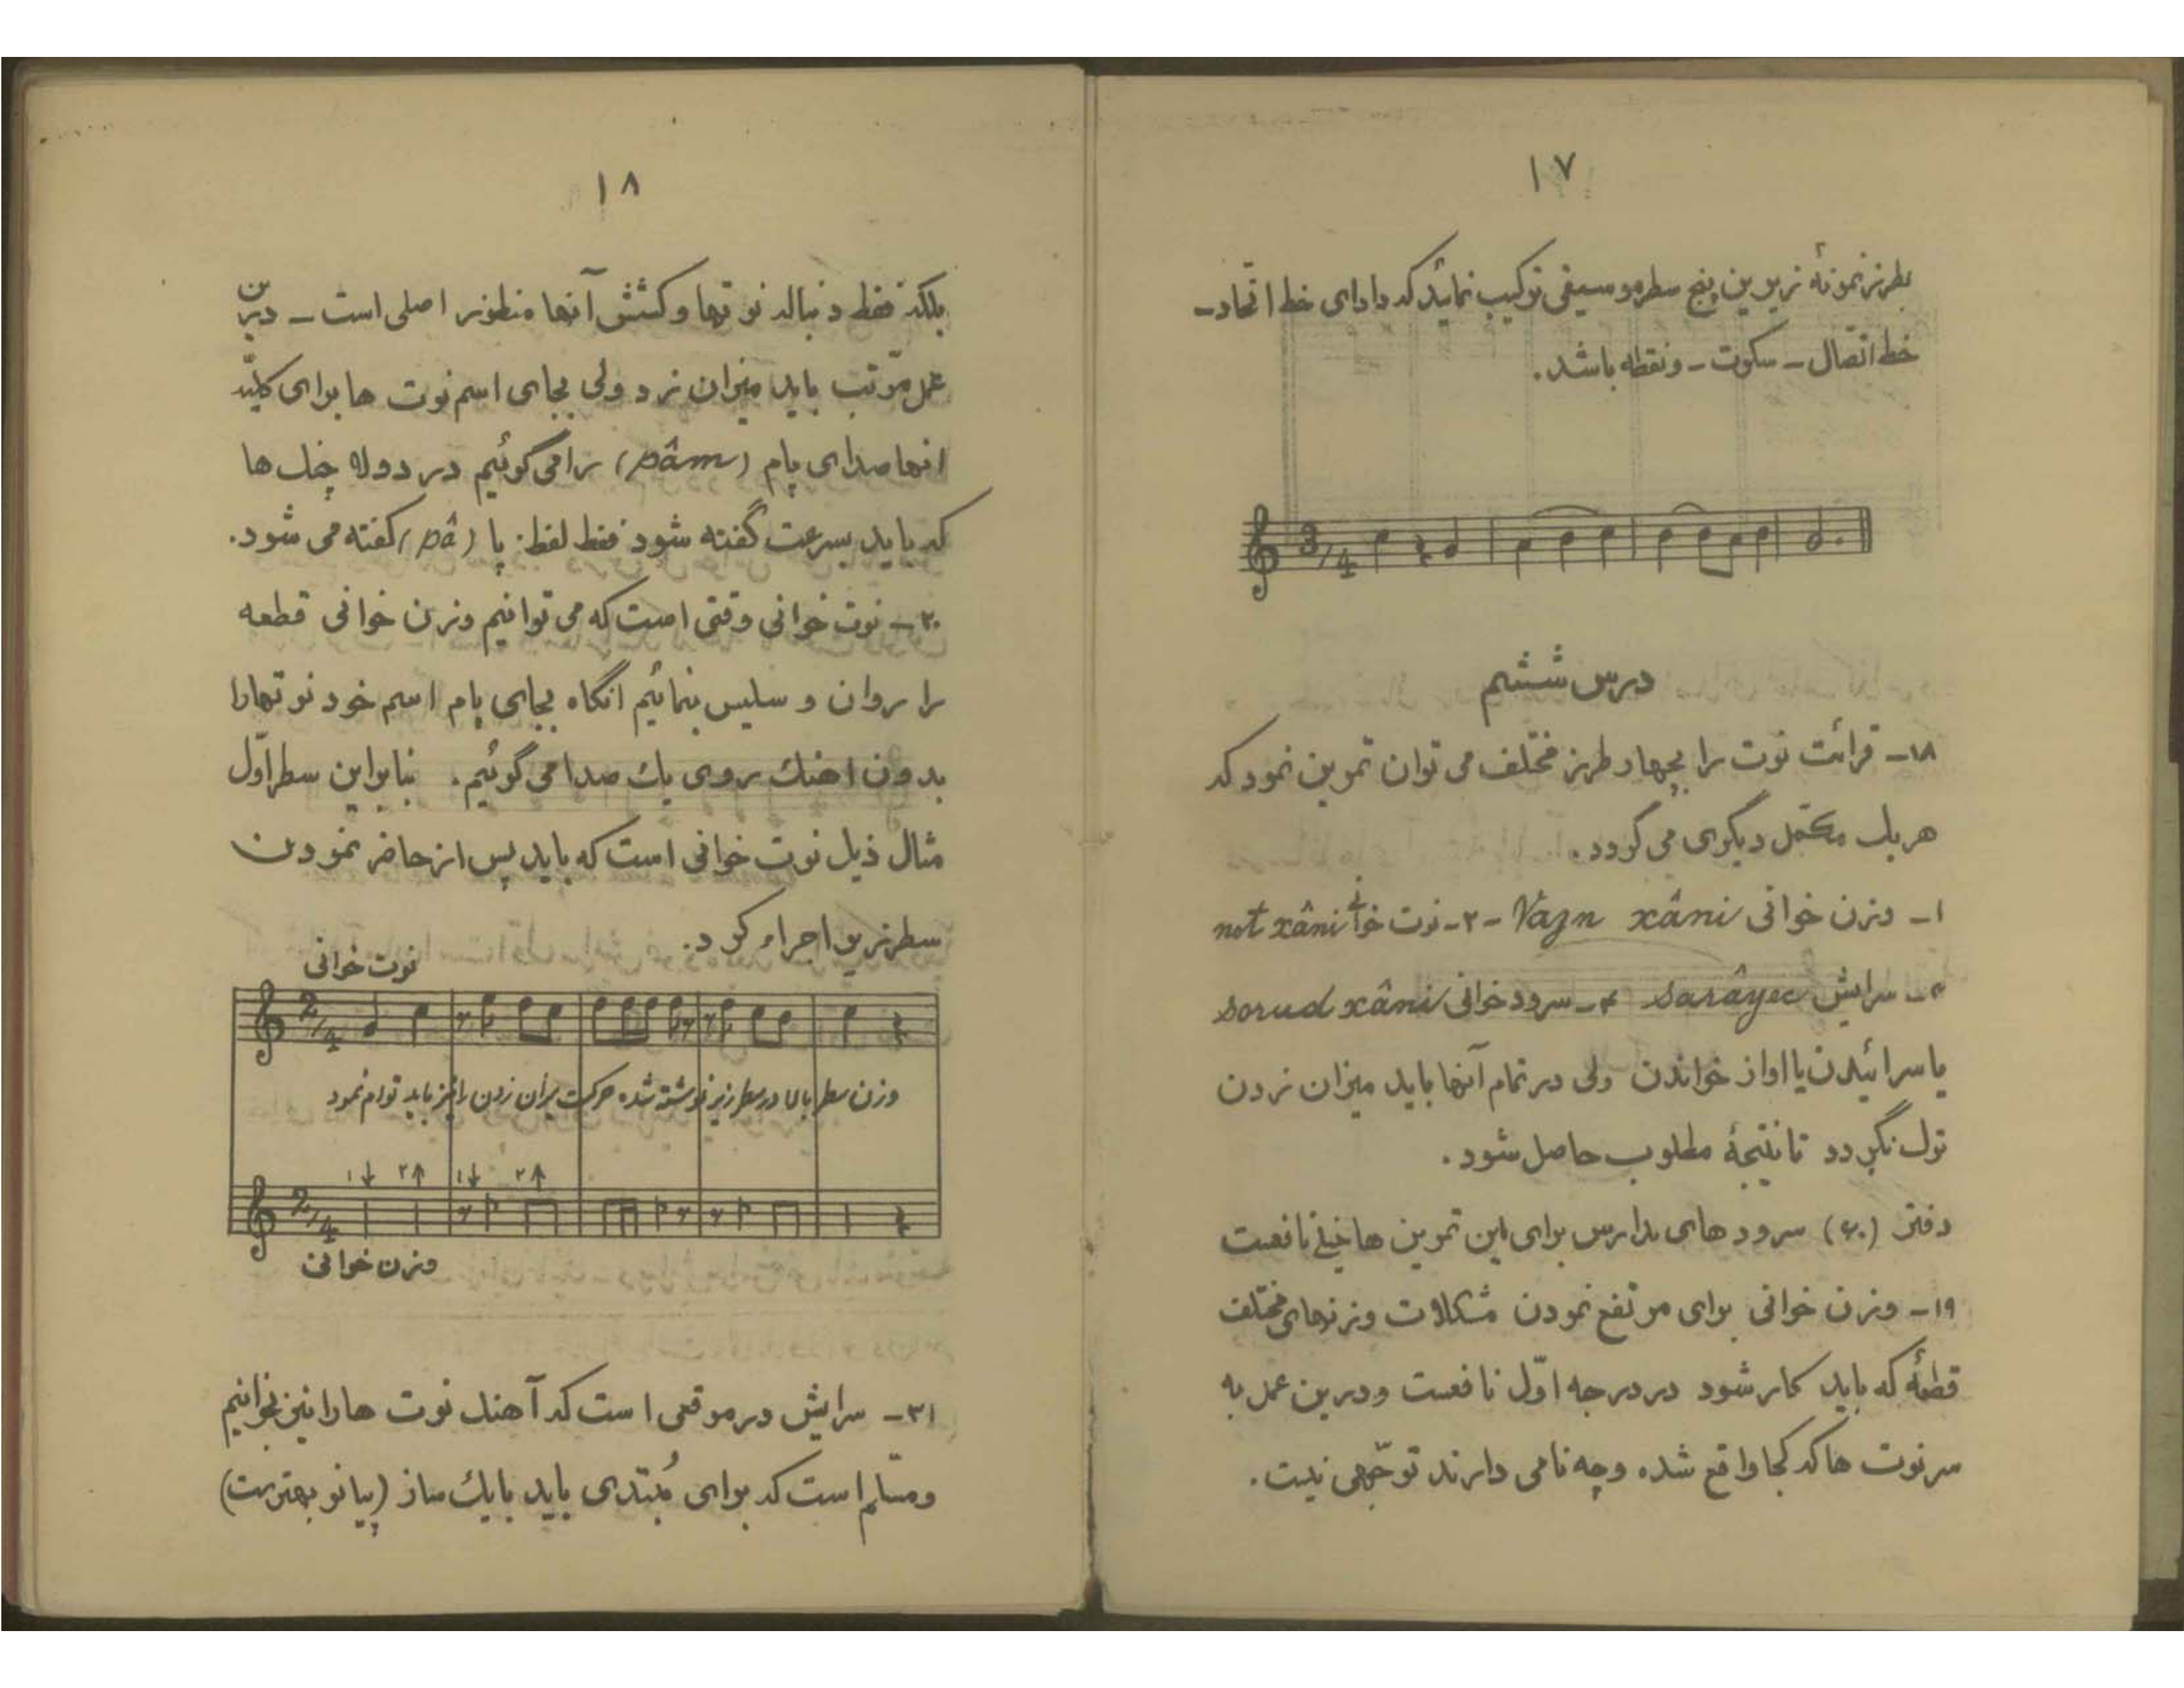 ۱۷
بطرز نمونهٔ زیرین پنج سطر موسیقی ترکیب نمائید که دارای خط اتّحاد-
خط اتّصال - سکوت - و نقطه باشد.
3/4
درس ششم
۱۸- قرائت نوت را بچهار طرز مختلف می توان تمرین نمود که
هر یک مکمّل دیگری می گردد.
۱- وزن خوانی Vazn xâni -۲- نوت خوانی not xâni
۳- سرایش sarâyec ۴- سرود خوانی sorud xâni
یا سرائیدن یا اواز خواندن ولی در تمام آنها باید میزان زدن
ترک نگردد تا نتیجهٔ مطلوب حاصل شود.
دفتر (۶۰) سرود های مدارس برای این تمرین ها خیلی نافعست
۱۹- وزن خوانی برای مرتفع نمودن مشکلات وزنهای مختلف
قطعهٔ که باید کار شود در درجه اوّل نافعست و درین عمل به
سر نوت ها که کجا واقع شده و چه نامی دارند توجّهی نیست.
۱۸
بلکه فقط دنباله نوتها و کشش آنها منظور اصلی است - درین
عمل مرّتب باید میزان زد ولی بجای اسم نوت ها برای کلیّه
انها صدای پام (pâm) را می گوئیم در دولا چنگ ها
که باید بسرعت گفته شود فقط لفظ: پا (pâ) گفته می شود.
۲۰- نوت خوانی وقتی است که می توانیم وزن خوانی قطعه
را روان و سلیس بنمائیم انگاه بجای پام اسم خود نوتها را
بدون اهنگ روی یک صدا می گوئیم. بنابراین سطر اوّل
مثال ذیل نوت خوانی است که باید پس از حاضر نمودن
سطر زیر اجراء کرد.
نوت خوانی
2/4
وزن سطر بالا در سطر زیر نوشته شده حرکت میزان زدن را نیز باید توام نمود
۱↓ ۲↑ ۱↓ ۲↑
2/4
وزن خوانی
۲۱- سرایش در موقعی است که آهنگ نوت ها را نیز بخوانیم
و مسّلم است که برای مُبتدی باید با یک ساز (پیانو بهترست)